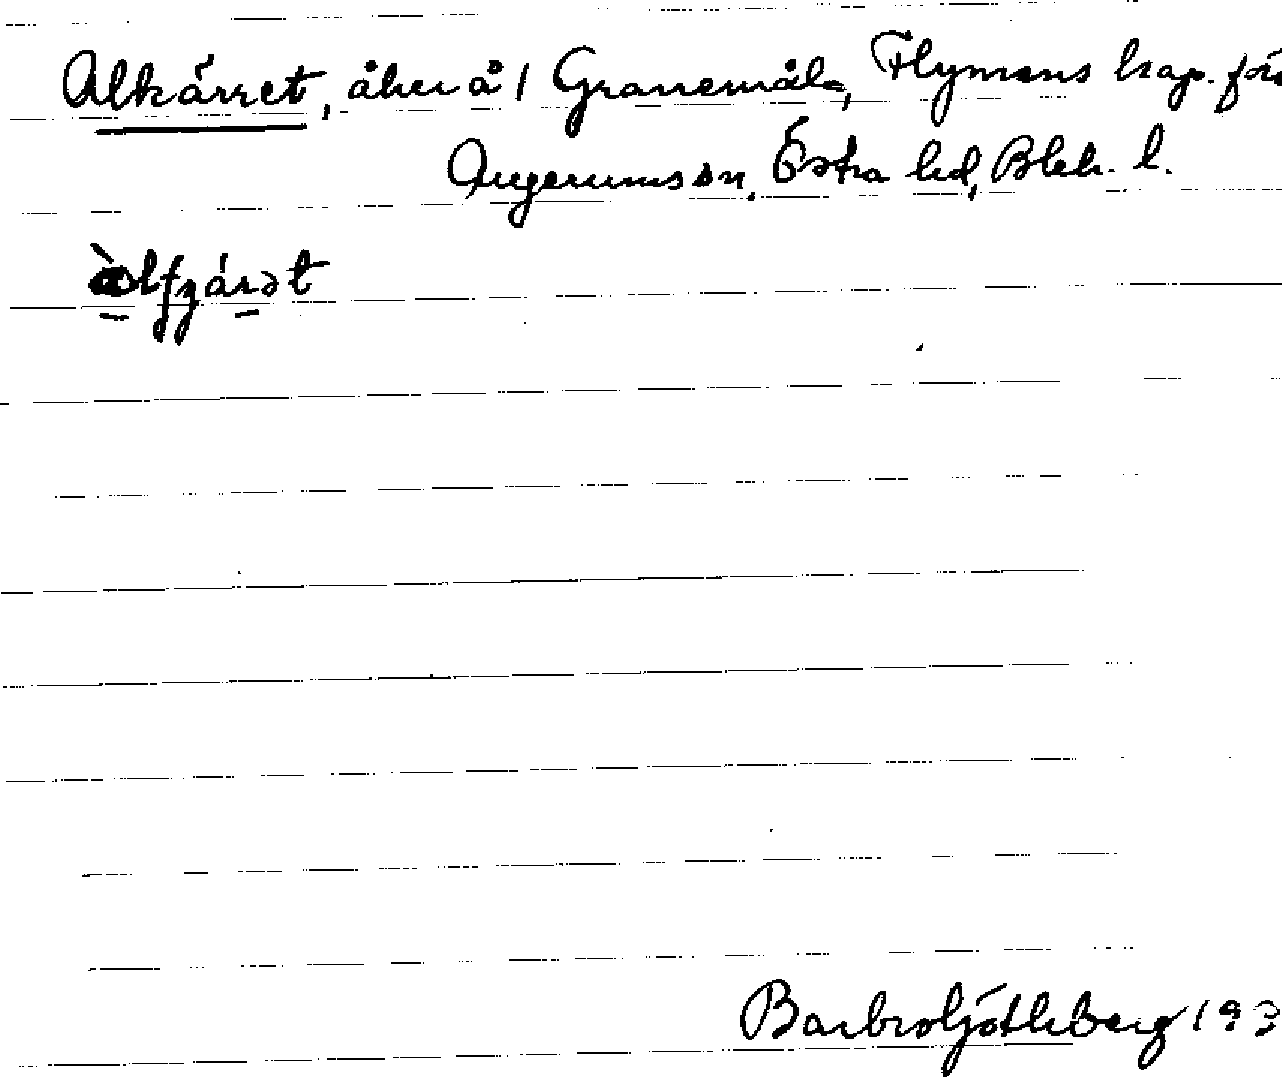 Alkärret, åker å 1 Granemåla, Flymens kap. för
Augerums sn, Östra hd, Blek. l.
Barbro Götlberg 193